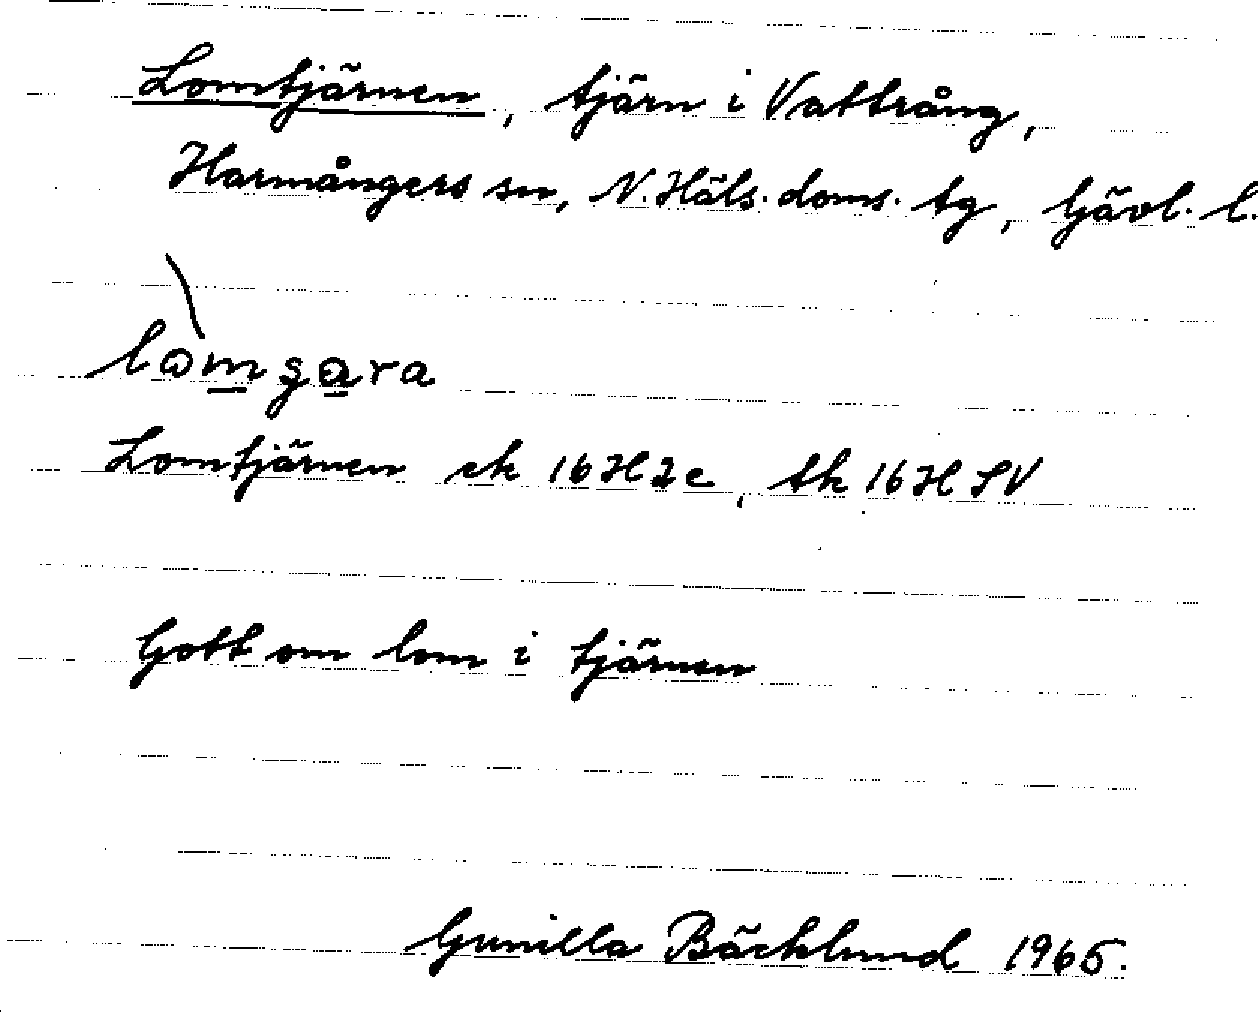 Lomtjärnen, tjärn i Vattrång,
Harmångers sn, N. Häls. doms. tg, Gävl. l.
lòmgara
Lomtjärnen ek 16H2c, tk 16H SV
Gott om lom i tjärnen
Gunilla Bäcklund 1965.